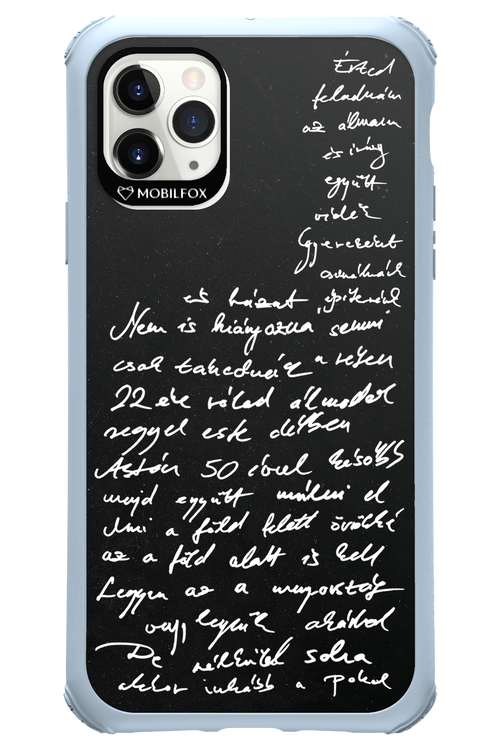 MOBILFOX
Érted
feladnám
az álmom
és így
együtt
vidék
Gyerekeket
csinálnánk
és házat építenék
Nem is hiányozna semmi
csak takednéd a velem
22 éve rólad álmodok
reggel este délben
Aztán 50 évvel később
majd együtt múlni el
Ami a föld felett örökké
az a föld alatt is kell
Legyen az a mennyország
vagy legyünk akárhol
De nélküled soha
akkor inkább a pokol